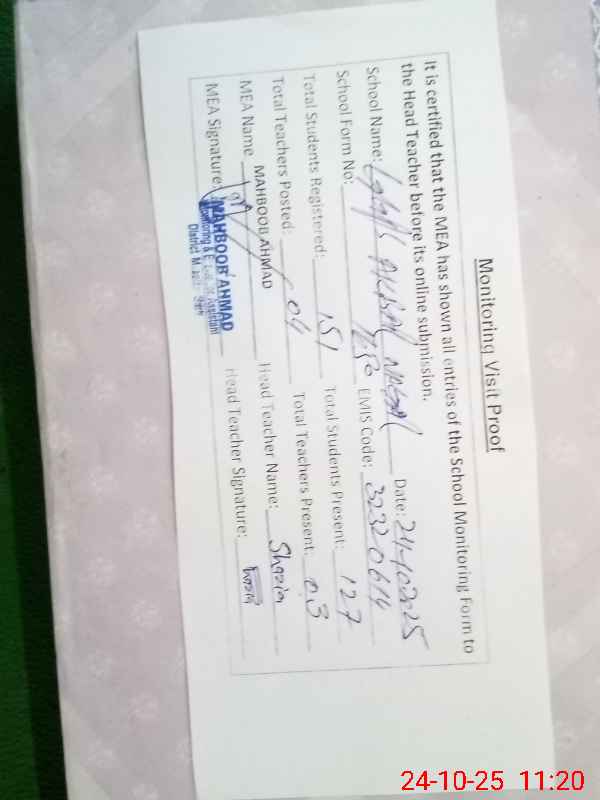 Monitoring Visit Proof
It is certified that the MEA has shown all entries of the School Monitoring Form to
the Head Teacher before its online submission.
School Name: Date: 24-10-2025
School Form No: EMIS Code: 32320614
Total Students Registered: 151 Total Students Present: 127
Total Teachers Posted: 04 Total Teachers Present: 03
MEA Name MAHBOOB AHMAD Head Teacher Name: Shazia
MEA Signature: Head Teacher Signature: Shazia
MAHBOOB AHMAD
Monitoring & Assistant
District
24-10-25 11:20